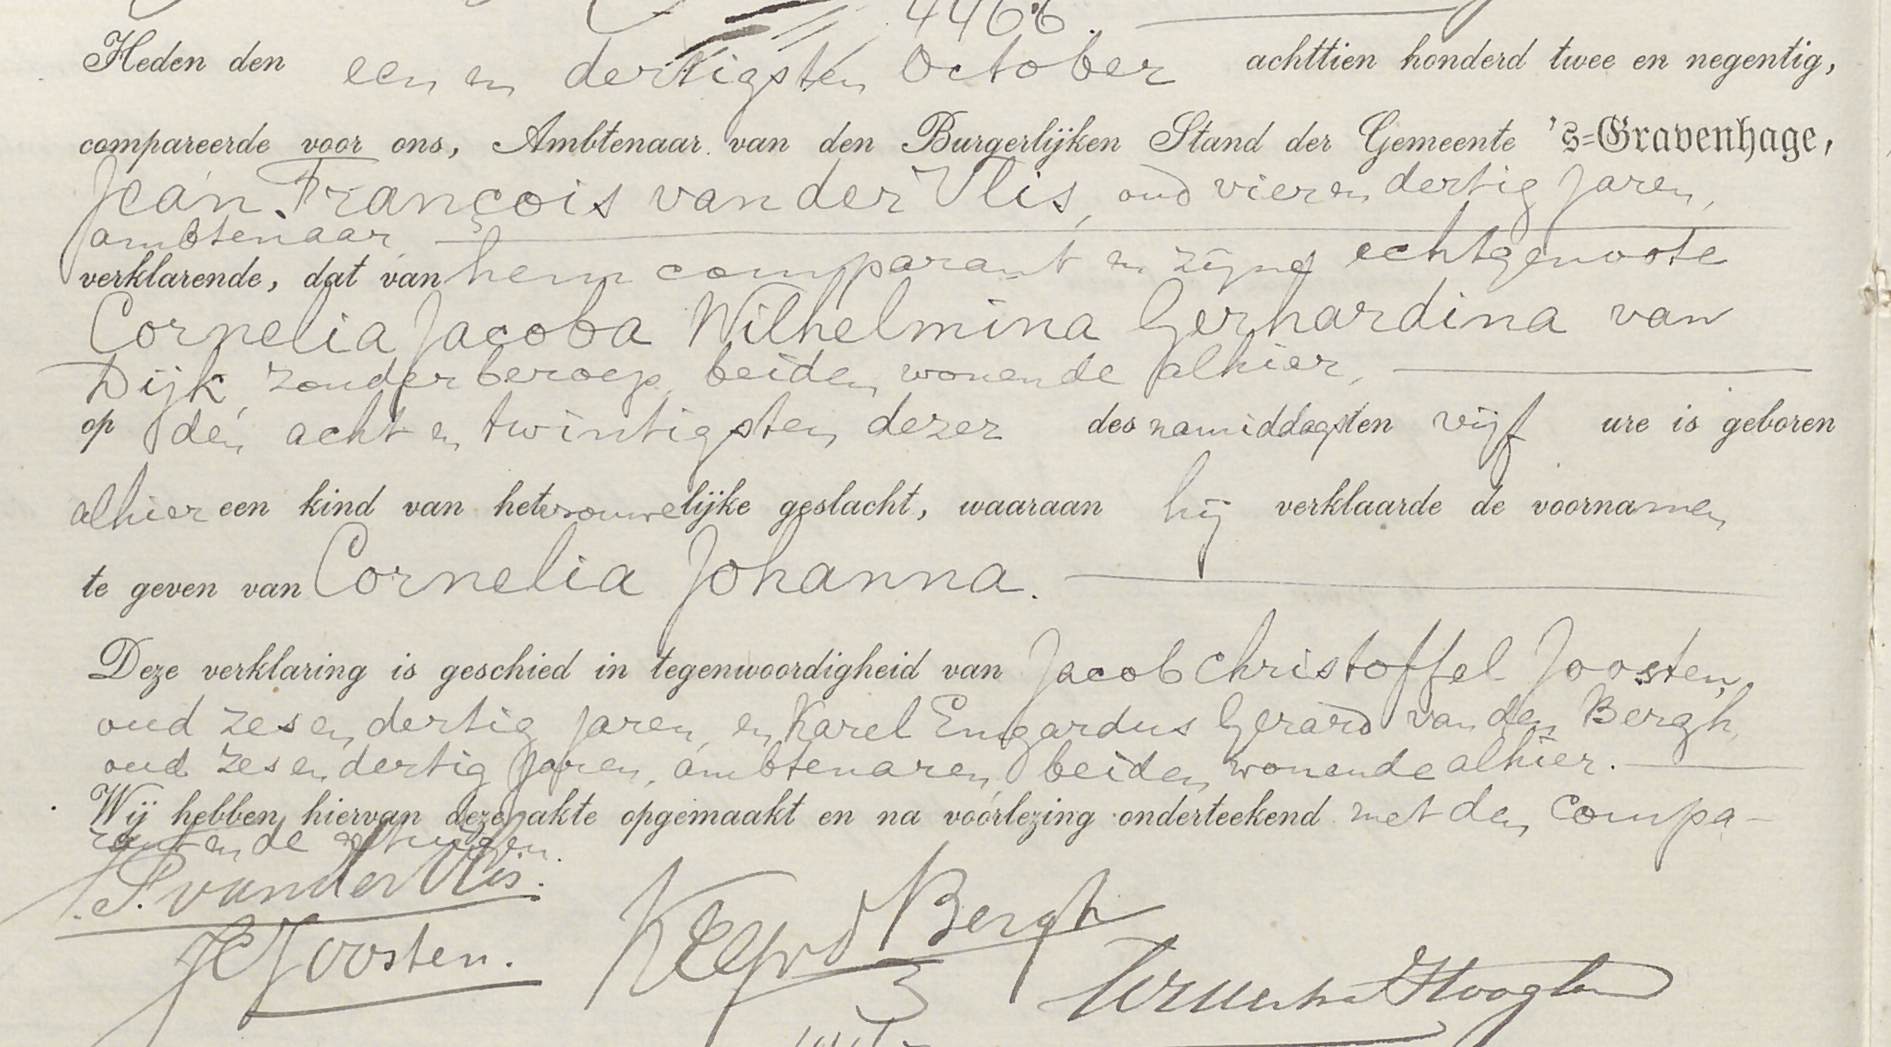 4466.
Heden den een en dertigsten October achttien honderd twee en negentig,
compareerde voor ons, Ambtenaar van den Burgerlijken Stand der Gemeente 's=Gravenhage,
Jean François van der Vlis, oud vier en dertig jaren,
ambtenaar,
verklarende, dat van hem comparant en zijne echtgenoote
Cornelia Jacoba Wilhelmina Gerhardina van
Dijk, zonder beroep, beiden wonende alhier,
op den acht en twintigsten dezer des namiddags ten vijf ure is geboren
alhier een kind van het vrouwelijke geslacht, waaraan hij verklaarde de voornamen
te geven van Cornelia Johanna.
Deze verklaring is geschied in tegenwoordigheid van Jacob Christoffel Joosten,
oud zes en dertig jaren, en Karel Engardus Gerard van den Bergh,
oud zes en dertig jaren, ambtenaren, beiden wonende alhier.
Wij hebben hiervan deze akte opgemaakt en na voorlezing onderteekend met den compa-
rant en de getuigen.
van der Vlis.
JCJoosten. Bergh